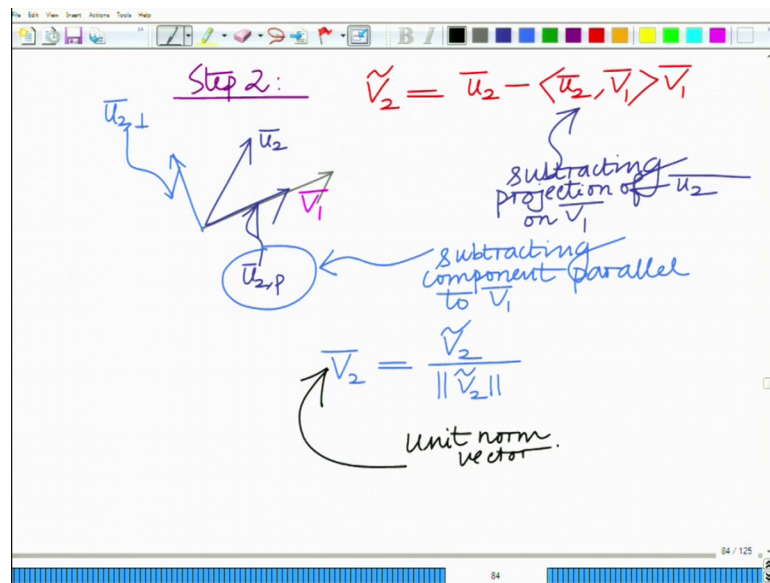 File Edit View Insert Actions Tools Help
B I
Step 2: Ṽ₂ = u̅₂ − <u̅₂, V̅₁> V̅₁
u̅₂⊥
u̅₂
V̅₁
u̅₂,p
subtracting
projection of u̅₂
on V̅₁
subtracting
component parallel
to V̅₁
V̅₂ = Ṽ₂ / ||Ṽ₂||
unit norm
vector.
84 / 125
84